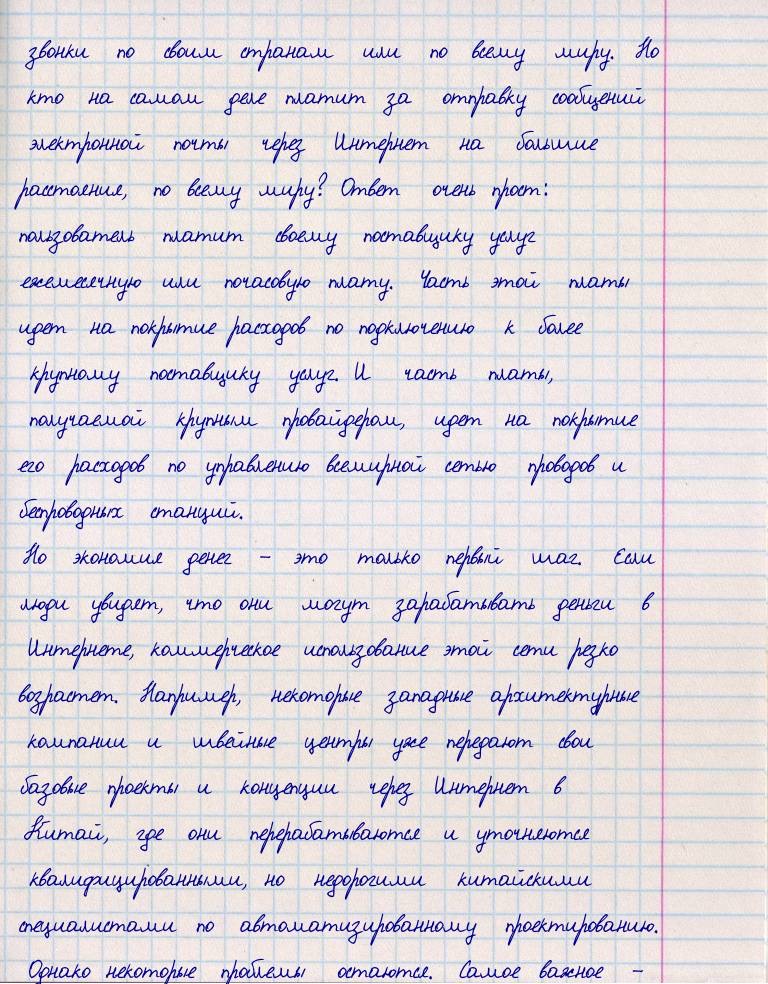 звонки по своим странам или по всему миру. Но
кто на самом деле платит за отправку сообщений
электронной почты через Интернет на большие
расстояния, по всему миру? Ответ очень прост:
пользователь платит своему поставщику услуг
ежемесячную или почасовую плату. Часть этой платы
идет на покрытие расходов по подключению к более
крупному поставщику услуг. И часть платы,
получаемой крупным провайдером, идет на покрытие
его расходов по управлению всемирной сетью проводов и
беспроводных станций.
Но экономия денег – это только первый шаг. Если
люди увидят, что они могут зарабатывать деньги в
Интернете, коммерческое использование этой сети резко
возрастет. Например, некоторые западные архитектурные
компании и швейные центры уже передают свои
базовые проекты и концепции через Интернет в
Китай, где они перерабатываются и уточняются
квалифицированными, но недорогими китайскими
специалистами по автоматизированному проектированию.
Однако некоторые проблемы остаются. Самое важное –